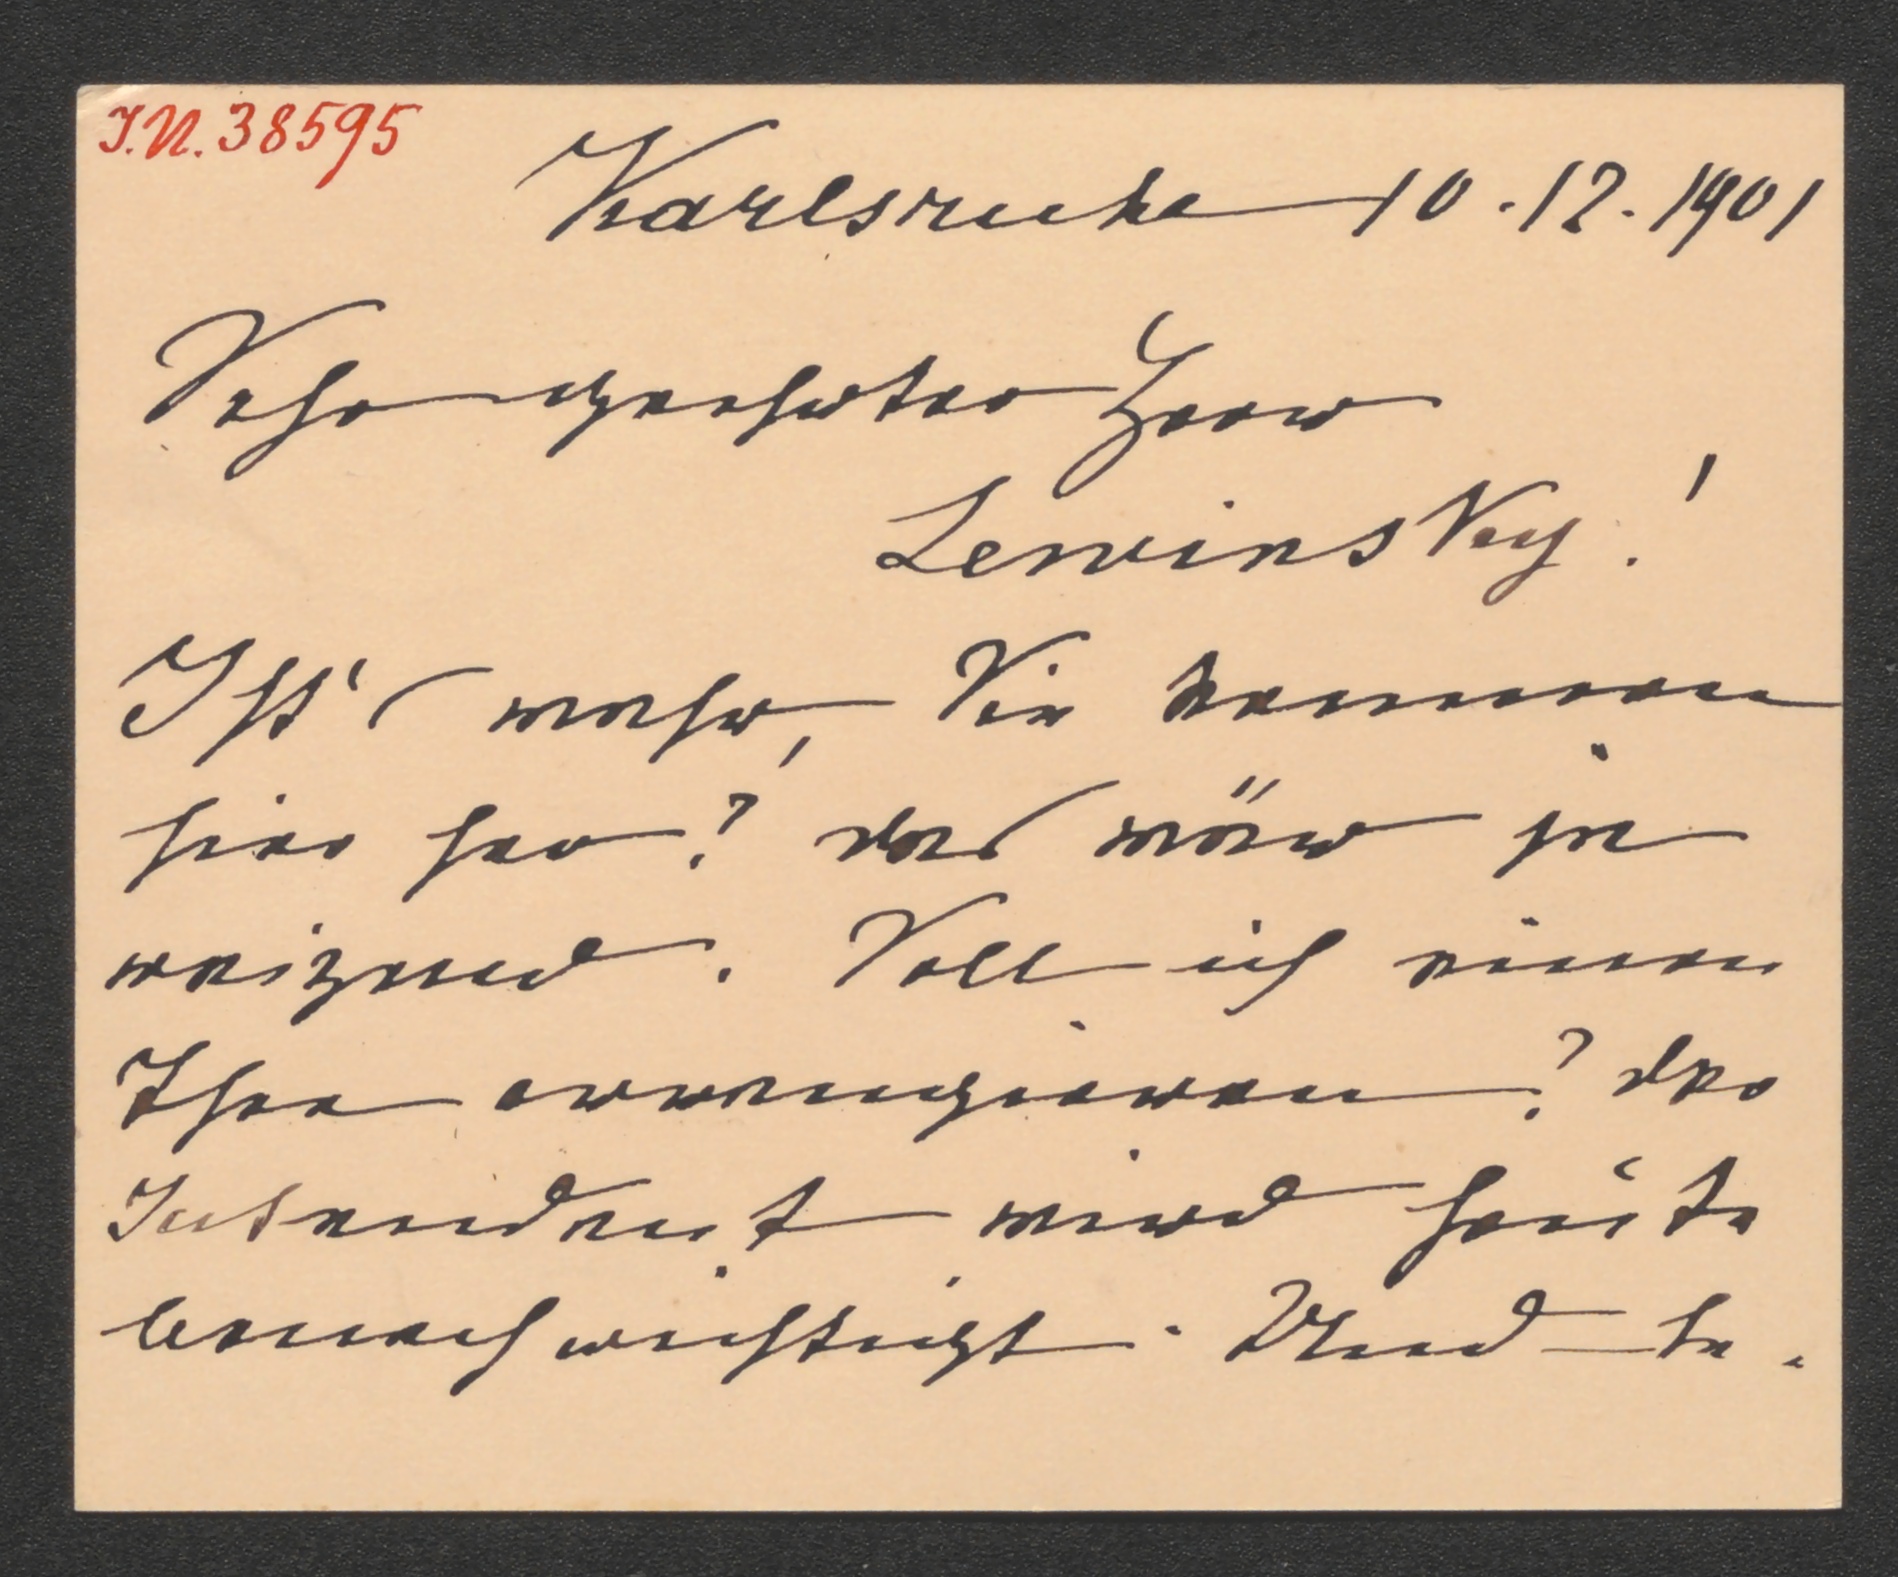 I.N. 38595
Karlsruhe 10.12.1901
Sehr geehrter Herr
Lewinsky!
Ist's wahr, Sie kommen
hier her? das wäre ja
reizend. Soll ich einen
Thee arrangieren? der
Intendant wird heute
benachrichtigt. Und be.